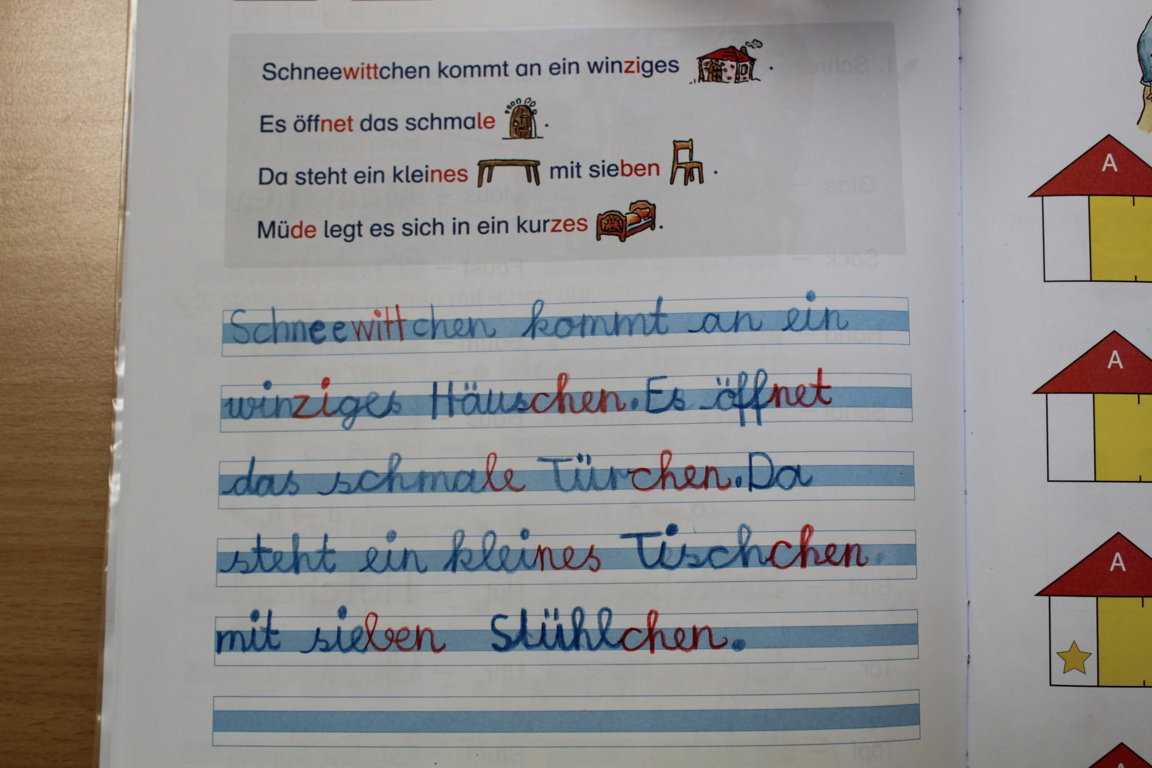 Schneewittchen kommt an ein winziges .
Es öffnet das schmale .
Da steht ein kleines mit sieben .
Müde legt es sich in ein kurzes .
Schneewittchen kommt an ein
winziges Häuschen. Es öffnet
das schmale Türchen. Da
steht ein kleines Tischchen
mit sieben Stühlchen.
A
A
A
A